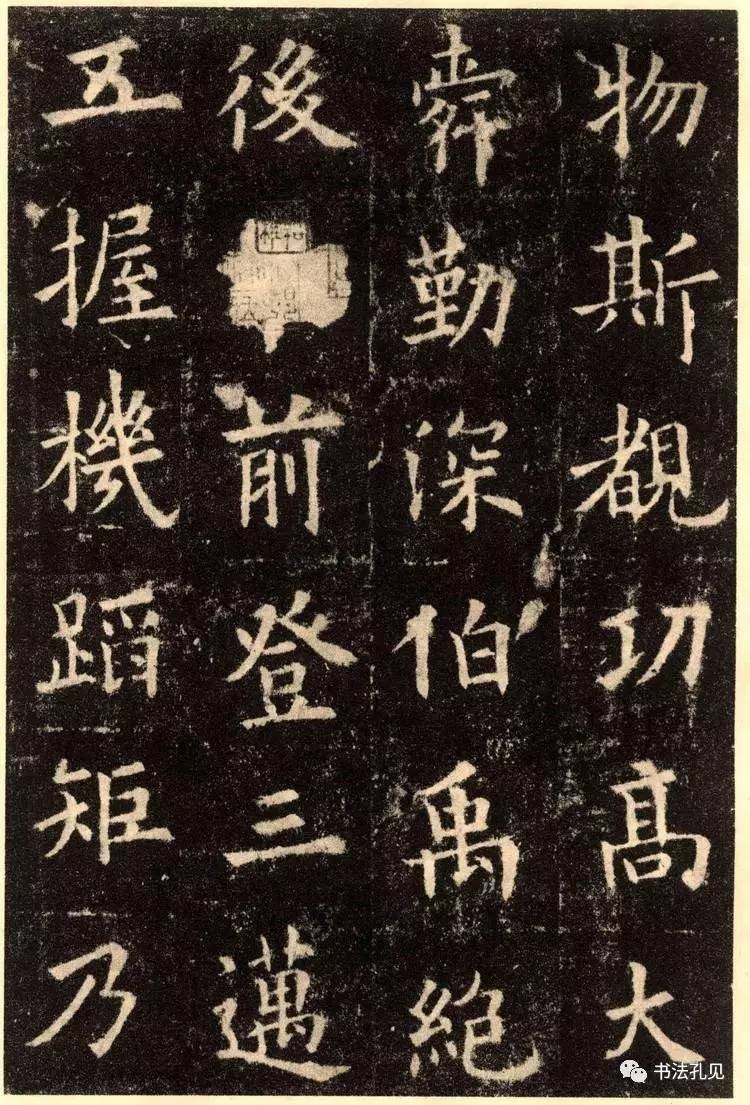 物斯覩功高大
舜勤深伯禹絕
後前登三邁
五握機蹈矩乃
书法孔见